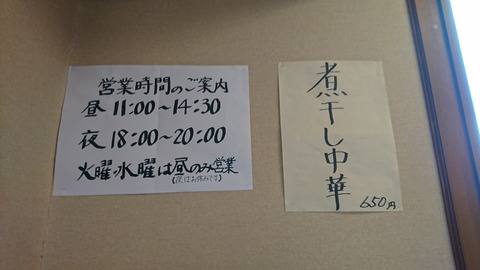 営業時間のご案内
昼 11:00～14:30
夜 18:00～20:00
火曜、水曜は昼のみ営業
(夜はお休みです)
煮干し中華
650円